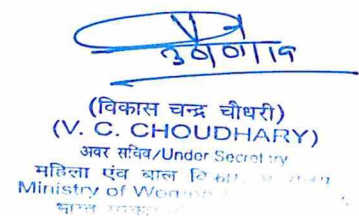 30/01/19
(विकास चन्द्र चौधरी)
(V. C. CHOUDHARY)
अवर सचिव/Under Secretary
महिला एंव बाल
Ministry of
भारत